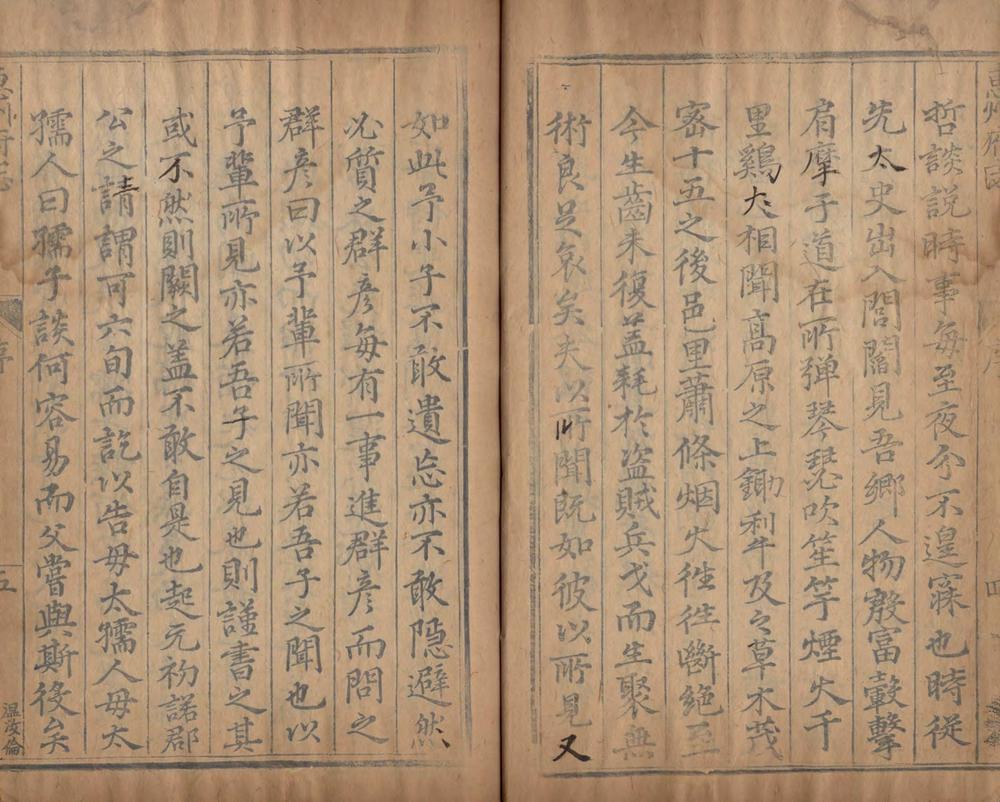 哲談說時事每至夜分不遑寐也時從
先太史出入閭閻見吾鄉人物殷富轂擊
肩摩于道在所彈琴瑟吹笙竽煙火千
里鷄犬相聞高原之上鋤利牛及之草木茂
宻十五之後邑里蕭條烟火徃徃斷絶至
今生齒未復蓋耗於盗賊兵戈而生聚無
術良足哀矣夫以所聞既如彼以所見又
如此予小子不敢遺忘亦不敢隠避然
必質之群彦每有一事進群彦而問之
群彦曰以予輩所聞亦若吾子之聞也以
予輩所見亦若吾子之見也則謹書之其
或不然則闕之盖不敢自是也起元初諾郡
公之請謂可六旬而訖以告母太孺人母太
孺人曰孺子談何容易而父嘗與斯役矣
序
五
温汝倫